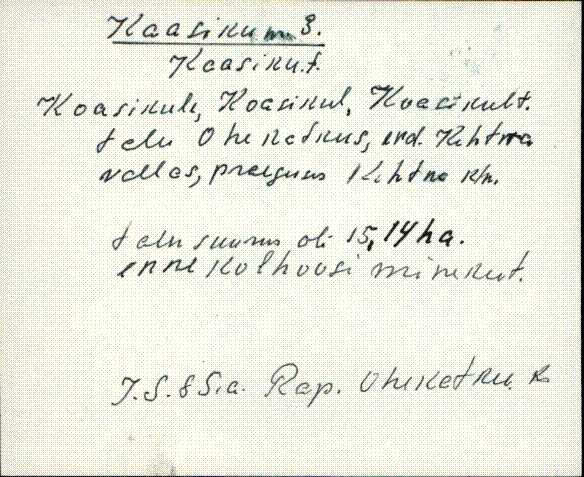 Kaasiku m 3.
Kaasiku t.
Koasikule, Koasikul, Koasikult.
talu Ohekatkus, end. Kehtna
vallas, praegusus Kehtna k/n.
talu suurus oli 15,14 ha.
enne kolhoosi minekut.
J. S. 85.a. Rap. Ohekatku. k